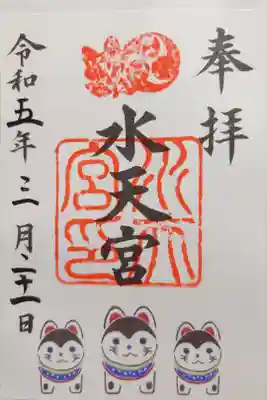 奉拝
水天宮
令和五年三月二十一日